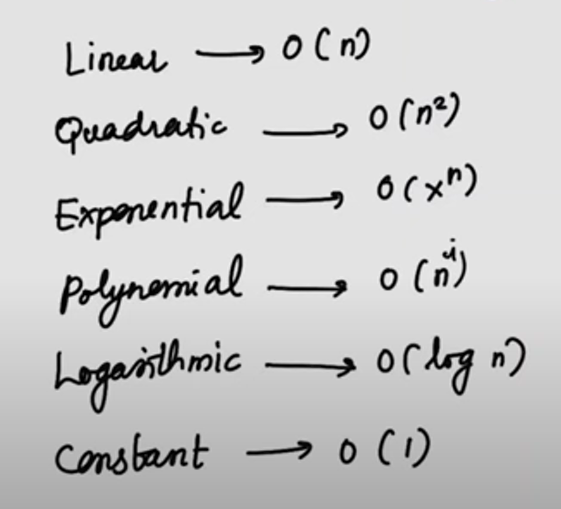 Linear → O(n)
Quadratic → O(n²)
Exponential → O(xⁿ)
Polynomial → O(nⁱ)
Logarithmic → O(log n)
Constant → O(1)